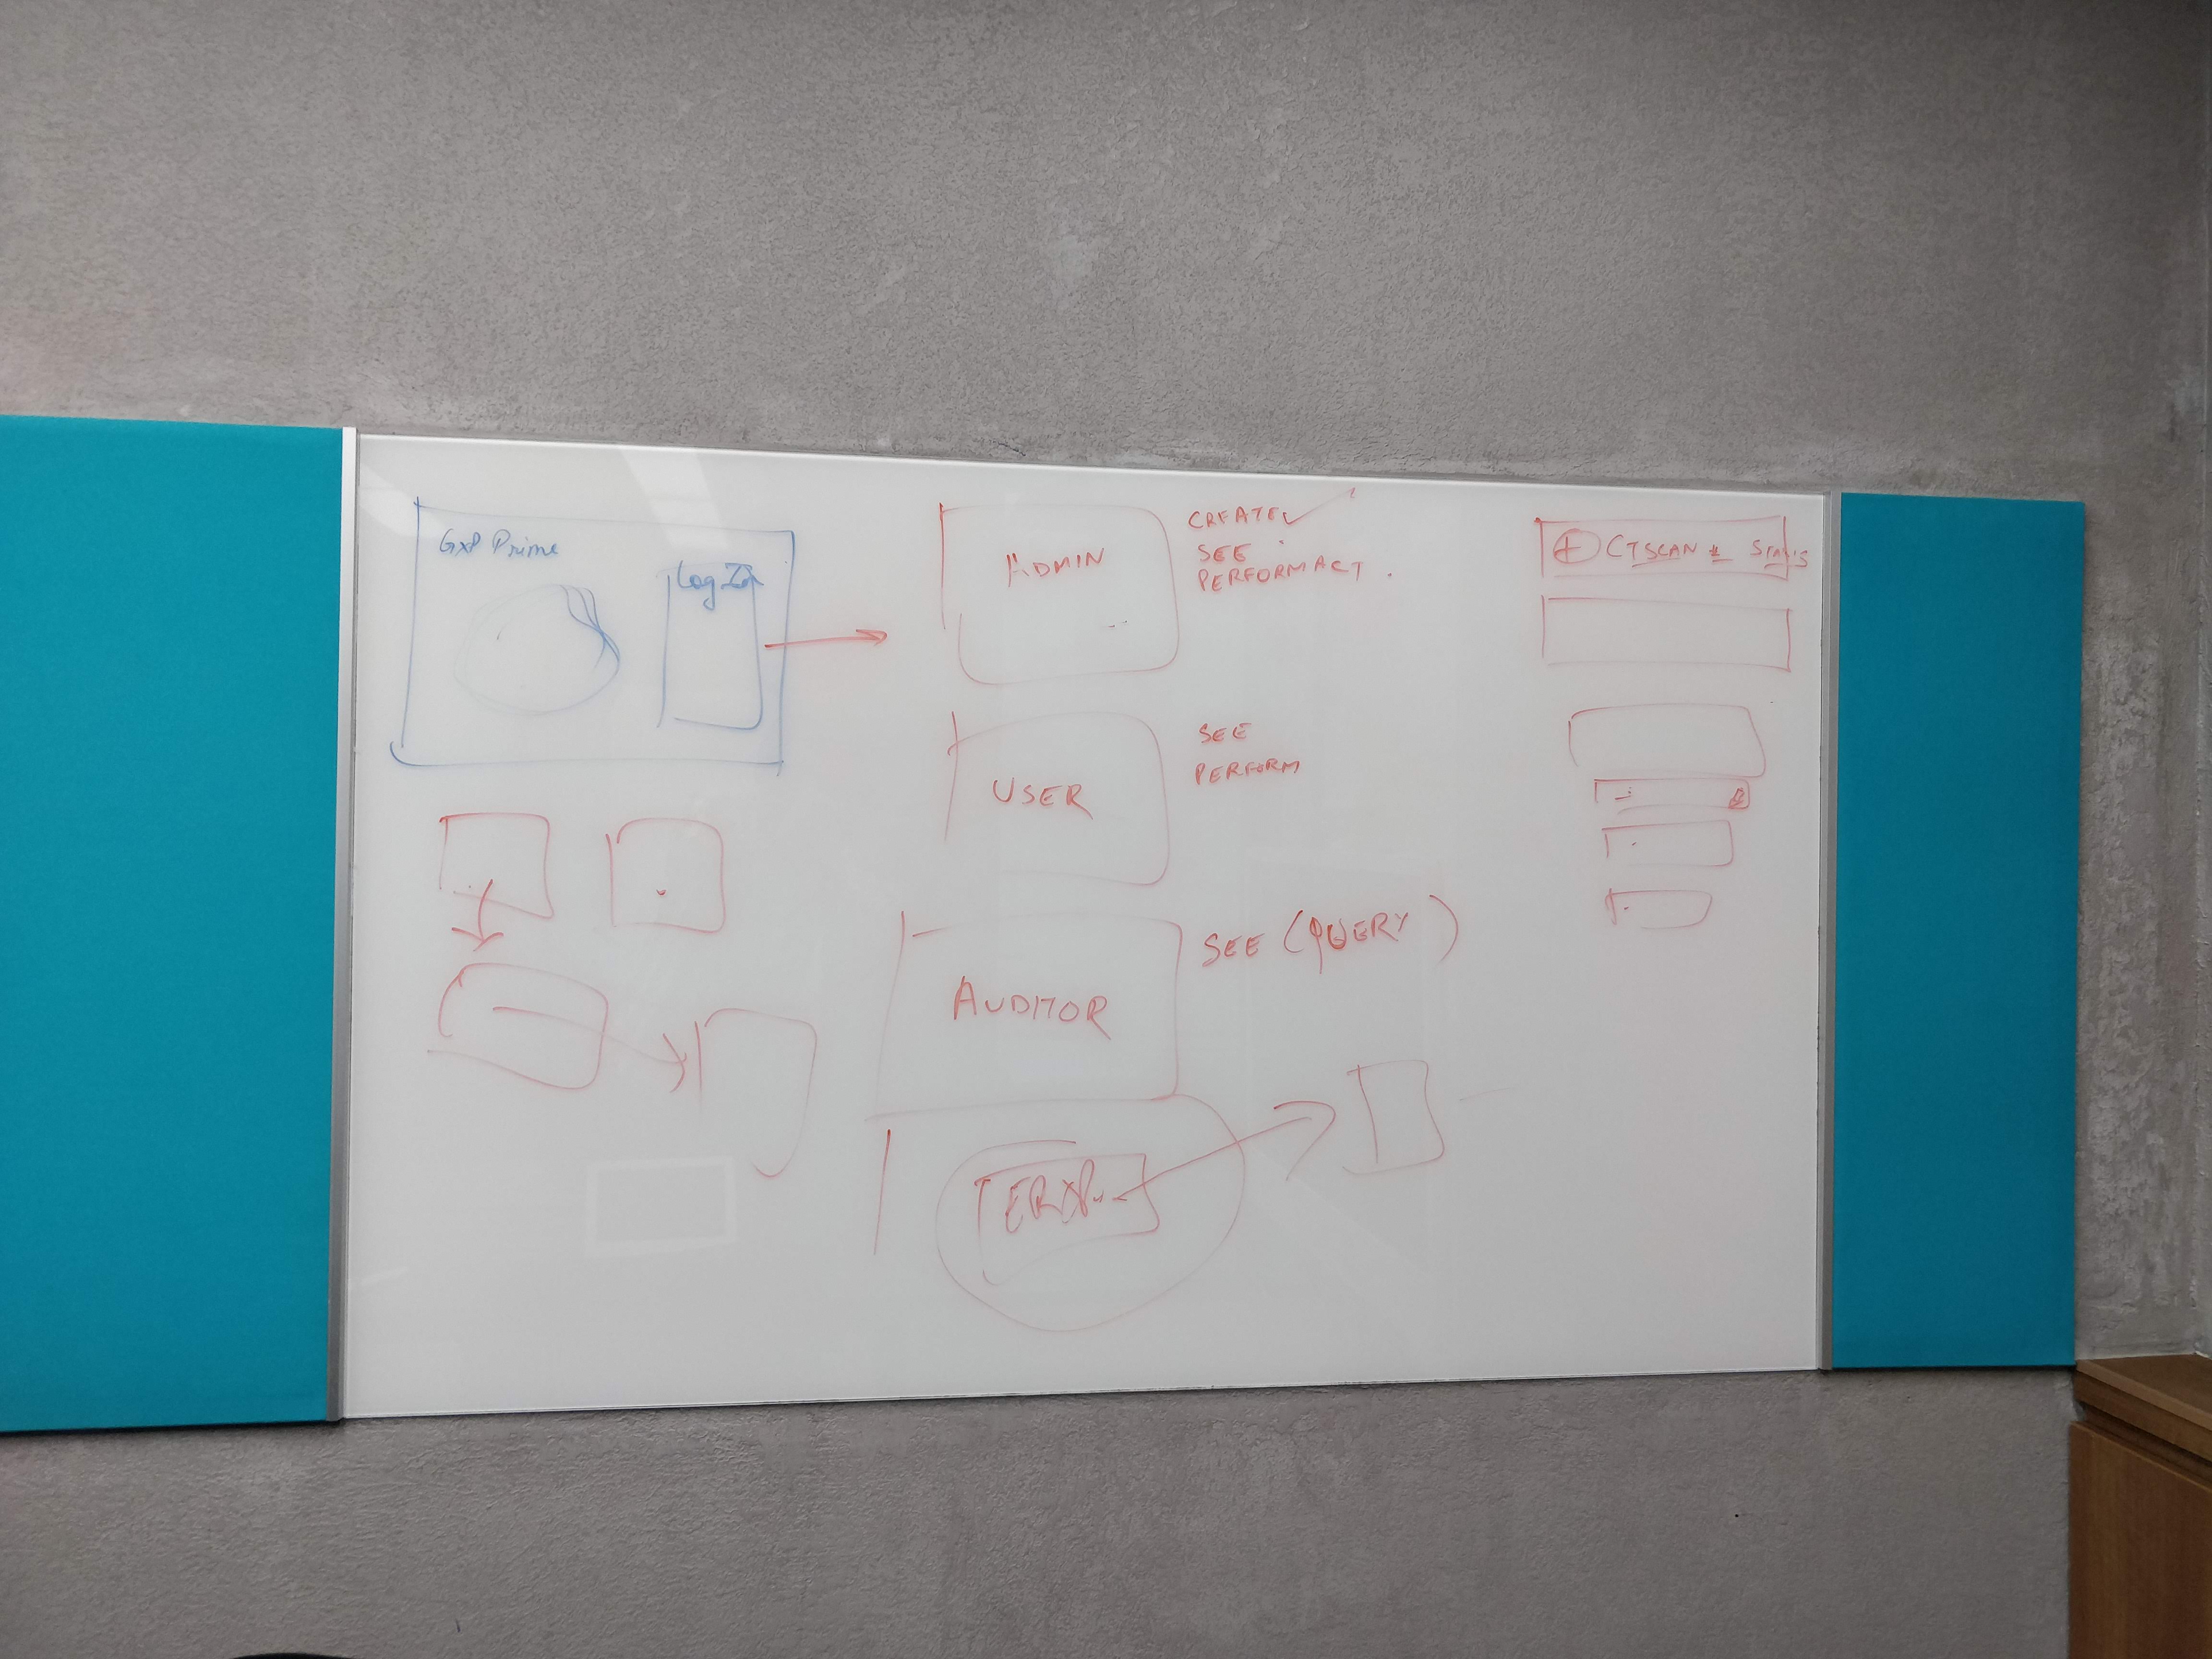 GxP Prime
Log In
ADMIN
CREATE
SEE
PERFORM ACT.
USER
SEE
PERFORM
AUDITOR
SEE (QUERY)
CTSCAN